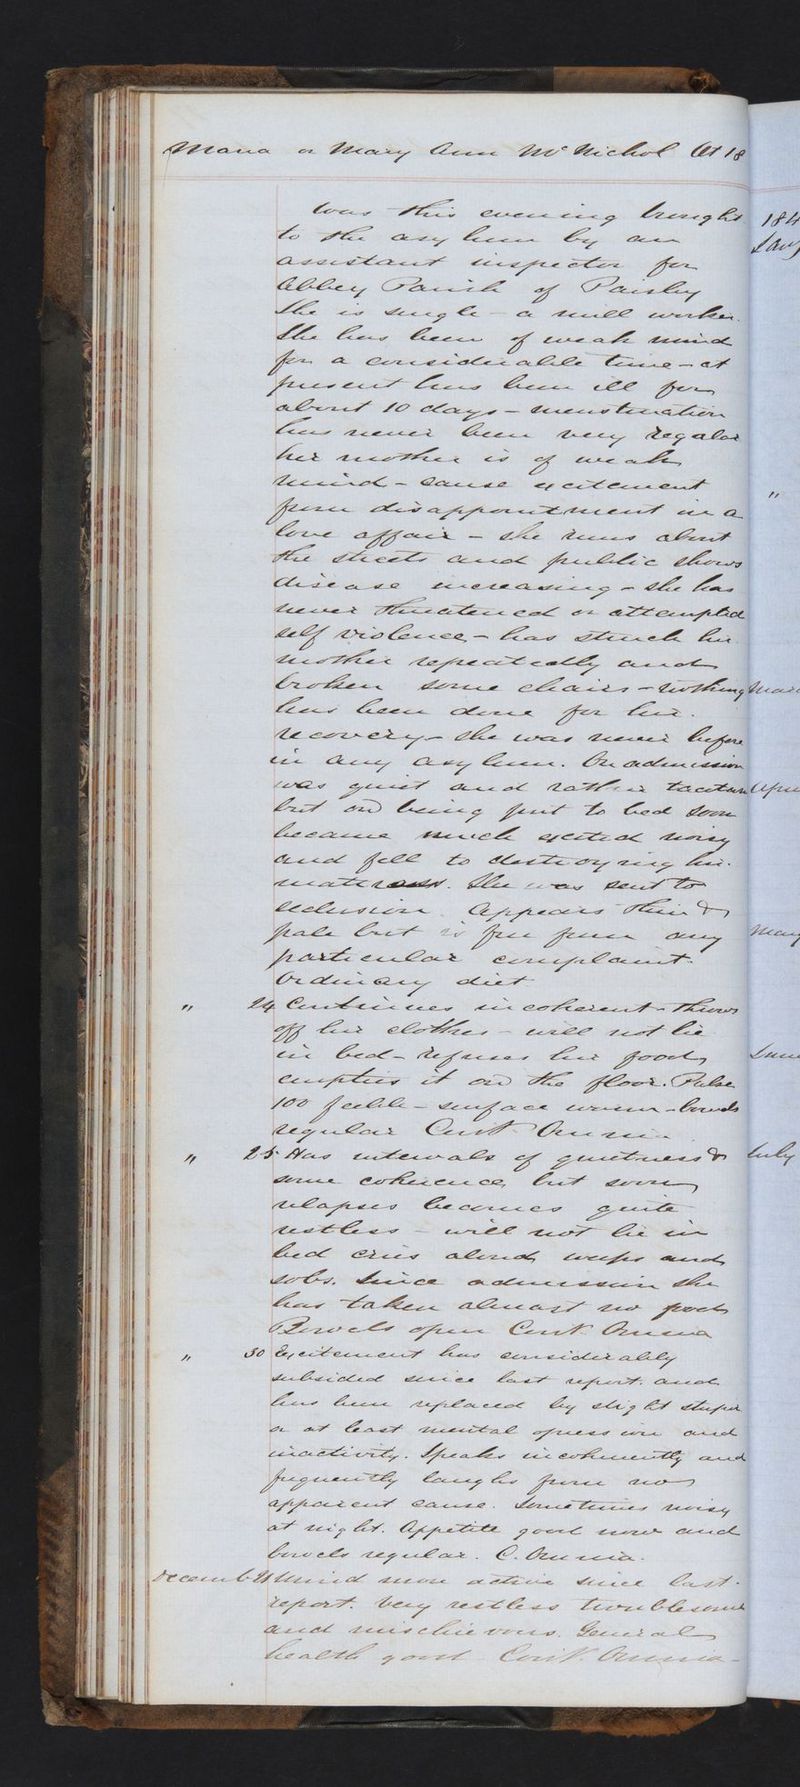 Maria or Mary Ann McNichol Æt 18
was this evening brought
to the asylum by an
assistant inspector for
Abbey Parish of Paisley
She is single - a mill worker.
She has been of weak mind
for a considerable time - at
present has been ill for
about 10 days - menstruation
has never been very regular
her mother is of weak
mind - cause excitement
from disappointment in a
love affair - she runs about
the streets and public shows
disease increasing - she has
never threatened or attempted
self violence - has struck her
mother repeatedly and
broken some chairs - nothing
has been done for her
recovery - she was never before
in any asylum. On admission
was quiet and rather taciturn
but on being put to bed soon
became much excited noisy
and fell to destroying her
matrass. She was sent to
seclusion. Appears thin &
pale but is free from any
particular complaint.
Ordinary diet
" 24 Continues incoherent - throws
off her clothes - will not lie
in bed - refuses her food,
empties it on the floor. Pulse
100 feeble - surface warm - bowels
regular Cont Omnia
" 25 Has intervals of quietness &
some coherence, but soon
relapses becomes quite
restless - will not lie in
bed cries aloud weeps and
sobs. Since admission she
has taken almost no food
Bowels open Cont. Omnia
" 30 Excitement has considerably
subsided since last report. and
has been replaced by slight stupor
or at least mental opression and
inactivity. Speaks incoherently and
frequently laughs from no
apparent cause. Sometimes noisy
at night. Appetite good now and
bowels regular. C. Omnia.
Decemb 21 Mind more active since last
report. Very restless troublesome
and mischievous. General
health good Cont. Omnia -
184
"
June
July